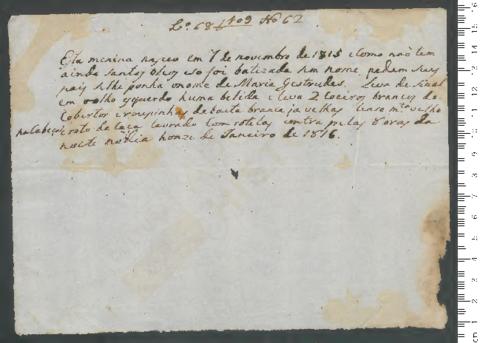 Lº 68 f 109 Nº 62
Esta menina naçeo em 7 de novembro de 1815 e como não tem
ainda Santos Oleos so foi batizada sem nome pedem seus
pais se lhe ponha o nome de Maria Gestrudes. Leva de sinal
em o olho esquerdo huma belida e leva 2 Coeiros brancos de
Cobertor e roupinhas de baeta branca ja velhas lenso mto velho
na cabeça roto de Caça lavrado com rotolos entra pelas 8 oras da
noite no dia honze de Janeiro de 1816.